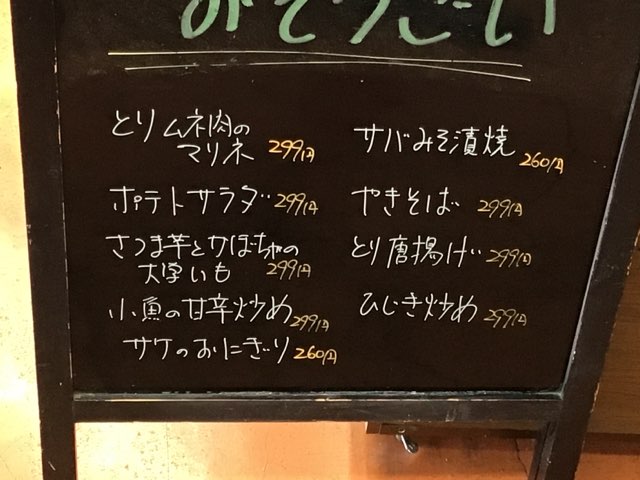 みそうざい
とりムネ肉の
マリネ 299円
ポテトサラダ 299円
さつま芋とかぼちゃの
大学いも 299円
小魚の甘辛炒め 299円
サケのおにぎり 260円
サバみそ漬焼 260円
やきそば 299円
とり唐揚げ 299円
ひじき炒め 299円